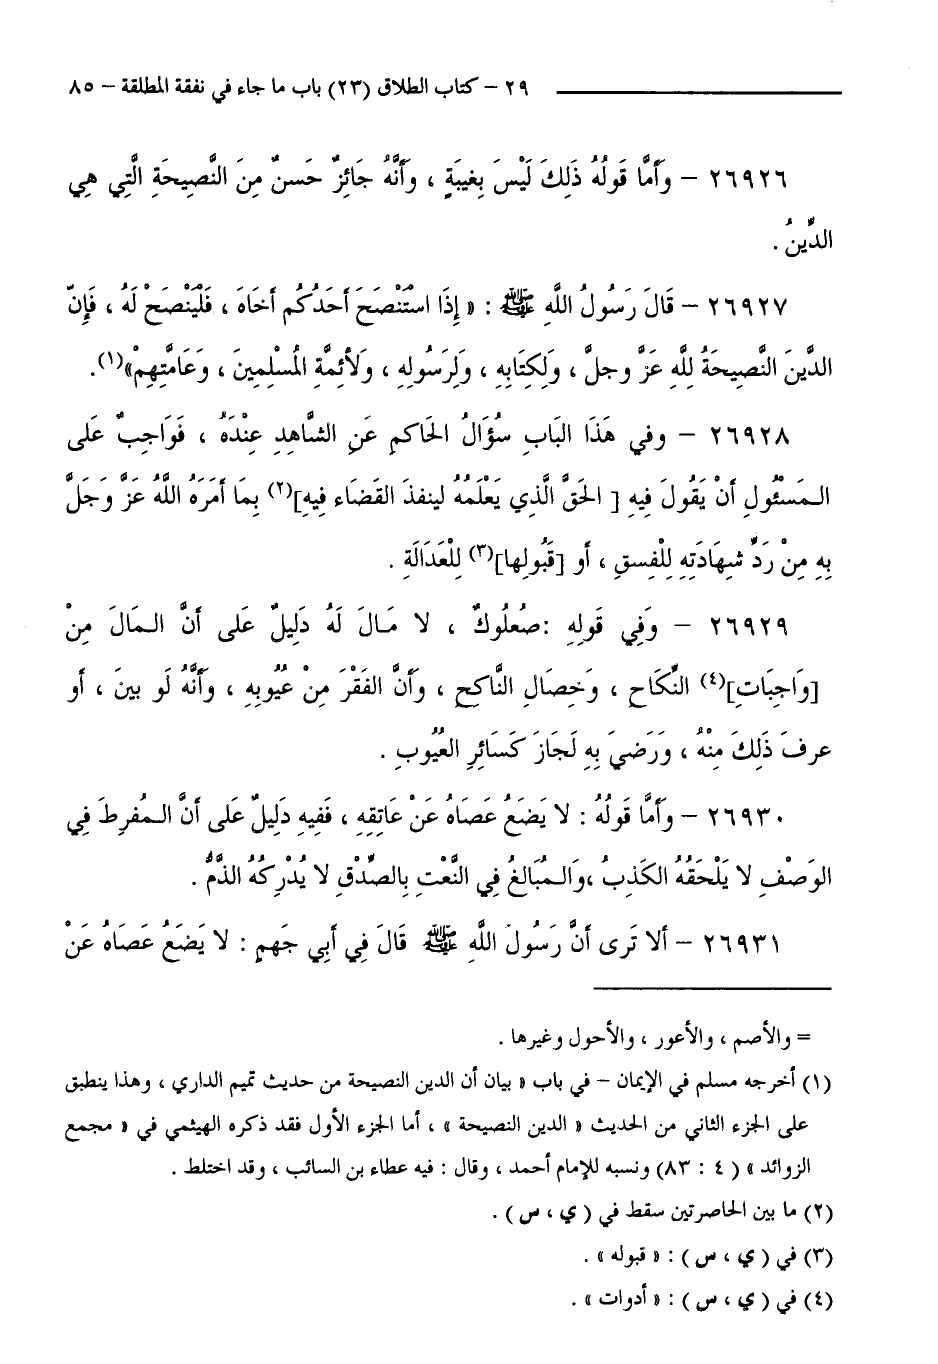 ٢٩ – كتاب الطلاق (٢٣) باب ما جاء في نفقة المطلقة – ٨٥
٢٦٩٢٦ – وَأَمَّا قَولُهُ ذَلِكَ لَيْسَ بِغيبَةٍ ، وَأَنَّهُ جَائِزٌ حَسنٌ مِنَ النَّصِيحَةِ الَّتِي هِي
الدِّينُ .
٢٦٩٢٧ – قَالَ رَسُولُ اللَّهِ ﷺ : « إِذَا استَنْصَحَ أَحَدُكُم أَخَاهَ ، فَلْيَنْصَحْ لَهُ ، فَإِنّ
الدِّينَ النَّصِيحَةُ للَّهِ عَزَّ وجلَّ ، وَلِكِتَابِهِ ، وَلِرَسُولِهِ ، وَلأئِمَّةِ الْمُسْلِمِينَ ، وَعَامَّتِهِمْ»(١).
٢٦٩٢٨ – وفي هَذَا البَابِ سُؤَالُ الحَاكمِ عَنِ الشَّاهِدِ عِنْدَهُ ، فَوَاجِبٌ عَلى
الـمَسْئُولِ أَنْ يَقُولَ فِيهِ [ الحَقَّ الَّذي يَعْلَمُهُ لينفذَ القَضَاء فيهِ](٢) بِمَا أَمَرَهُ اللَّهُ عَزَّ وَجَلَّ
بِهِ مِنْ رَدِّ شهَادَتِهِ لِلْفِسقِ ، أو [قَبُولِها](٣) لِلْعَدَالَةِ .
٢٦٩٢٩ – وَفِي قَولِهِ :صُعلُوكٌ ، لا مَـالَ لَهُ دَلِيلٌ عَلى أَنَّ الـمَالَ مِنْ
[وَاجِبَاتِ](٤) النِّكَاحِ ، وَخِصَالِ النَّاكحِ ، وَأَنَّ الفَقْرَ مِنْ عُيُوبِهِ ، وَأَنَّهُ لَو بينَ ، أو
عرفَ ذَلِكَ مِنْهُ ، وَرَضيَ بِهِ لَجَازَ كَسَائِرِ العُيُوبِ .
٢٦٩٣٠ – وَأَمَّا قَولُهُ : لا يَضَعُ عَصَاهُ عَنْ عَاتِقِهِ ، فَفِيهِ دَلِيلٌ عَلى أَنَّ الـمُفرِطَ فِي
الوَصْفِ لا يَلْحَقُهُ الكَذِبُ ،وَالـمُبَالِغُ فِي النَّعْتِ بِالصِّدْقِ لا يُدْرِكُهُ الذَّمُّ .
٢٦٩٣١ – ألا تَرى أنَّ رَسُولَ اللَّهِ ﷺ قَالَ فِي أَبِي جَهمٍ : لا يَضَعُ عَصَاهُ عَنْ
= والأصم ، والأعور ، والأحول وغيرها .
(١) أخرجه مسلم في الإيمان – في باب « بيان أن الدين النصيحة من حديث تميم الداري ، وهذا ينطبق
على الجزء الثاني من الحديث « الدين النصيحة » ، أما الجزء الأول فقد ذكره الهيثمي في « مجمع
الزوائد » ( ٤ : ٨٣) ونسبه للإمام أحمد ، وقال : فيه عطاء بن السائب ، وقد اختلط .
(٢) ما بين الحاصرتين سقط في ( ي ، س ) .
(٣) في ( ي ، س ) : « قبوله » .
(٤) في ( ي ، س ) : « أدوات » .